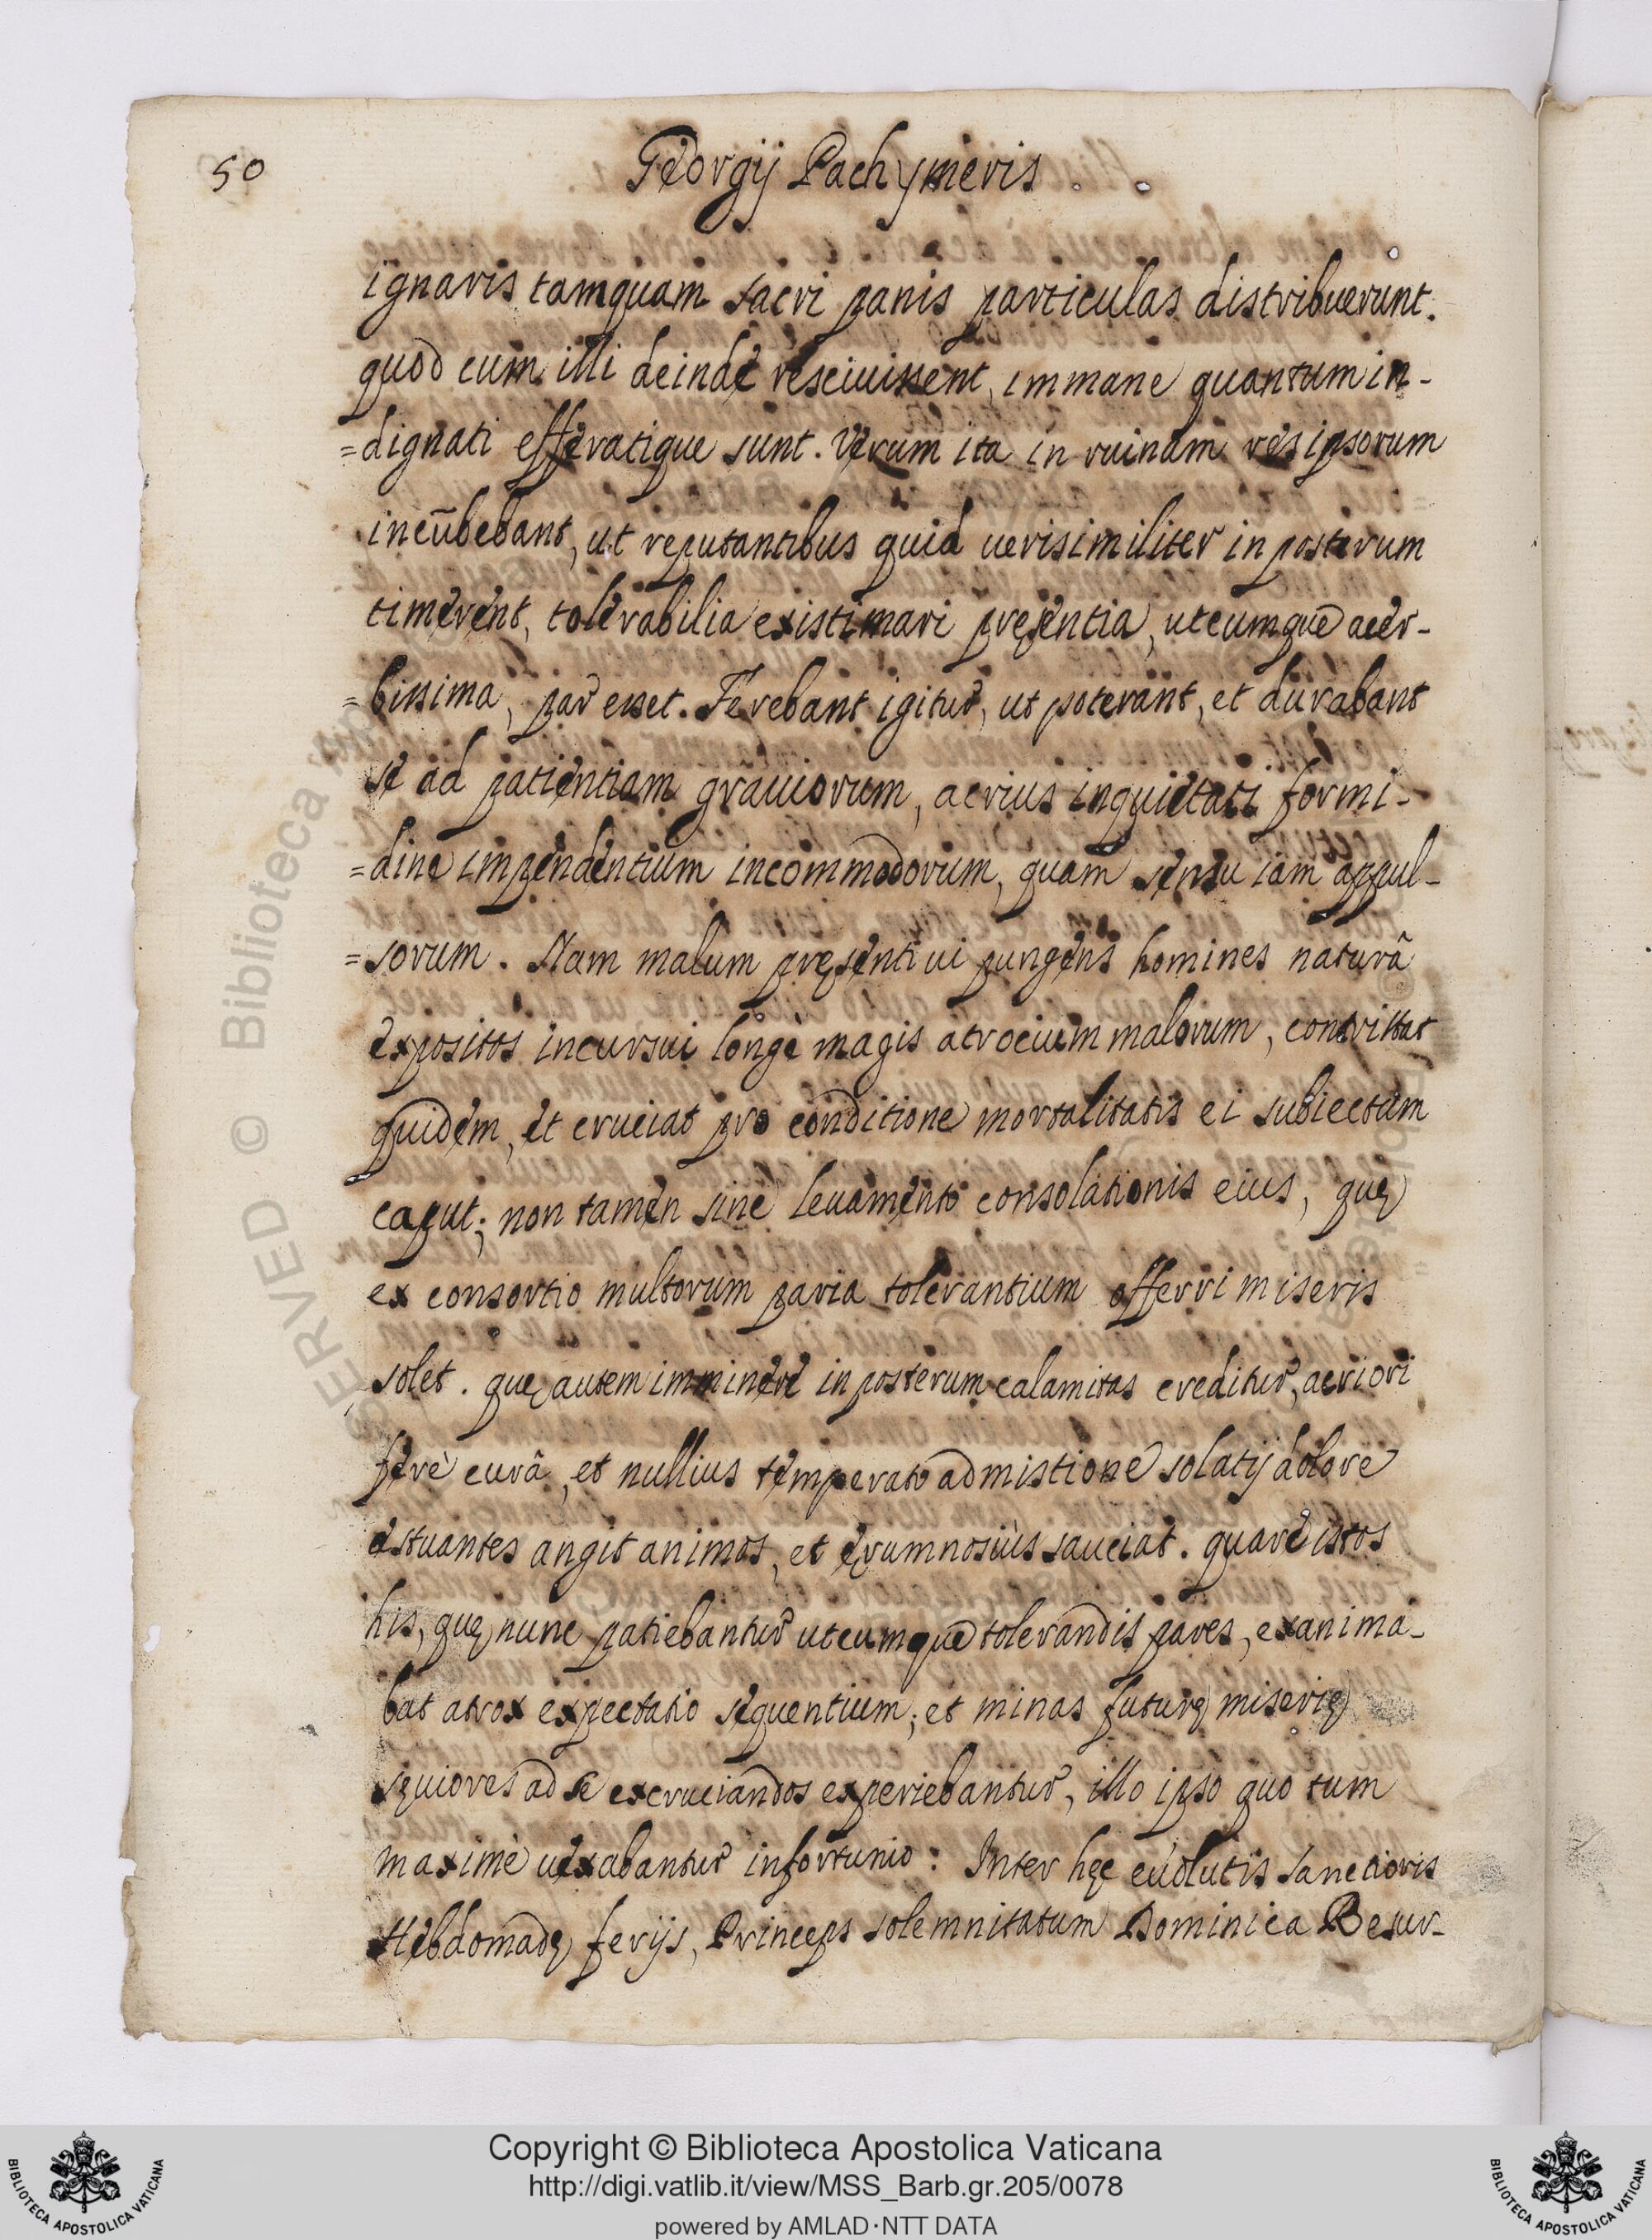 50
Georgij Pachymeris.
ignaris tamquam sacri panis particulas distribuerunt.
quod cum illi deinde resciuissent, immane quantum in-
=dignati efferatique sunt. Verum ita in ruinam res ipsorum
incūbebant, ut reputantibus quid uerisimiliter in posterum
timerent, tolerabilia existimari pręsentia, utcumque acer-
=bissima, par esset. Ferebant igitur, ut poterant, et durabant
se ad patientiam grauiorum, acrius inquietati formi-
=dine impendentium incommodorum, quam sensu iam appul-
=sorum. Nam malum pręsenti ui pungens homines naturâ
expositos incursui longè magis atrocium malorum, contristat
quidem, et cruciat pro conditione mortalitatis ei subiectum
caput; non tamen sine leuamento consolationis eius, quę
ex consortio multorum paria tolerantium offerri miseris
solet. quę autem imminere in posterum calamitas creditur, acriori
ferè curâ, et nullius temperato admistione solatij dolore
ęstuantes angit animos, et ęrumnosiùs sauciat. quare istos
his, quę nunc patiebantur utcumque tolerandis pares, exanima-
bat atrox expectatio sequentium; et minas futurę miserię
sęuiores ad se excruciandos experiebantur, illo ipso quo tum
maximè uexabantur infortunio: Inter hęc euolutis sanctioris
Hebdomadę ferijs, Princeps solemnitatum Dominica Resur-
RESERVED © Biblioteca Ap
Copyright © Biblioteca Apostolica Vaticana
http://digi.vatlib.it/view/MSS_Barb.gr.205/0078
powered by AMLAD·NTT DATA
BIBLIOTECA APOSTOLICA VATICANA
BIBLIOTECA APOSTOLICA VATICANA